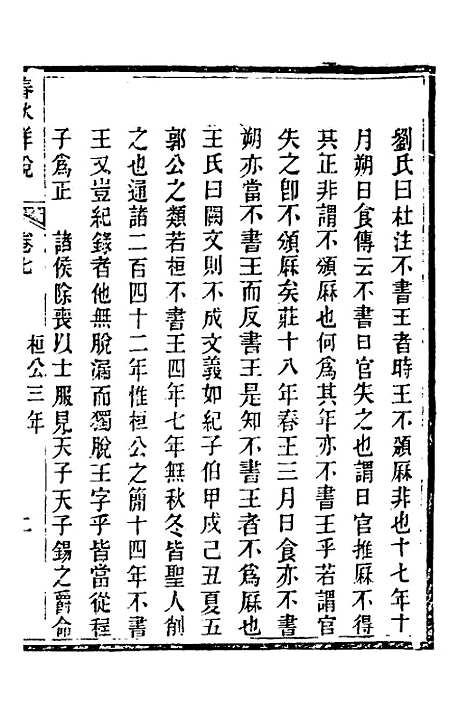 劉氏曰杜注不書王者時王不頒厤非也十七年十
月朔日食傳云不書日官失之也謂日官推厤不得
其正非謂不頒厤也何為其年亦不書王乎若謂官
失之卽不頒厤矣莊十八年春王三月日食亦不書
朔亦當不書王而反書王是知不書王者不為厤也
王氏曰闕文則不成文義如紀子伯甲戌己丑夏五
郭公之類若桓不書王四年七年無秋冬皆聖人削
之也通諸二百四十二年惟桓公之簡十四年不書
王又豈紀錄者他無脫漏而獨脫王字乎皆當從程
子為正　諸侯除喪以士服見天子天子錫之爵命
春秋詳說　卷七　桓公三年　二